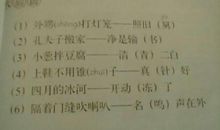 (1) 外甥(shēng)打灯笼——照旧(舅)
(2) 孔夫子搬家——净是输(书)
(3) 小葱拌豆腐——一清(青)二白
(4) 上鞋不用锥(zhuī)子——真(针)好
(5) 四月的冰河——开动(冻)了
(6) 隔着门缝吹喇叭——名(鸣)声在外